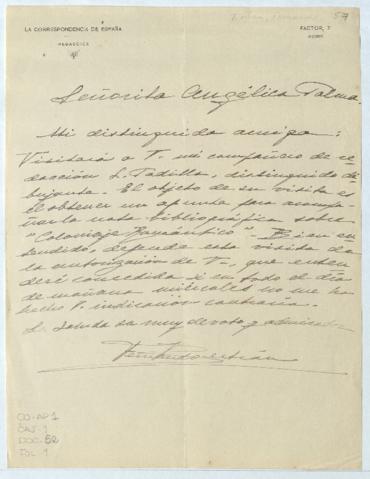 LA CORRESPONDENCIA DE ESPAÑA
FACTOR, 7
57
Señorita Angélica Palma.
Mi distinguida amiga:
Visitará a V. mi compañero de re-
dacción S. Padilla, distinguido di-
bujante. El objeto de su visita es
el obtener un apunte para acompa-
ñar la nota bibliográfica sobre
"Coloniaje Romántico". Bien en-
tendido, depende esta visita de
la autorización de V., que enten-
deré concedida si en todo el día
de mañana miércoles no me ha
hecho V. indicación contraria.
Le saluda su muy devoto y admirador
CO-AP 1
CAJ. 1
DOC. 52
FOL. 1